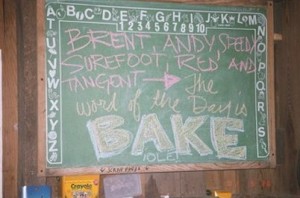 A B C D E F G H I J K L M
1 2 3 4 5 6 7 8 9 10
N O P Q R S
T U V W X Y Z
BRENT, ANDY SPEEDY
SUREFOOT, RED AND
TANGENT → The
word of the Day is
BAKE
Crayola